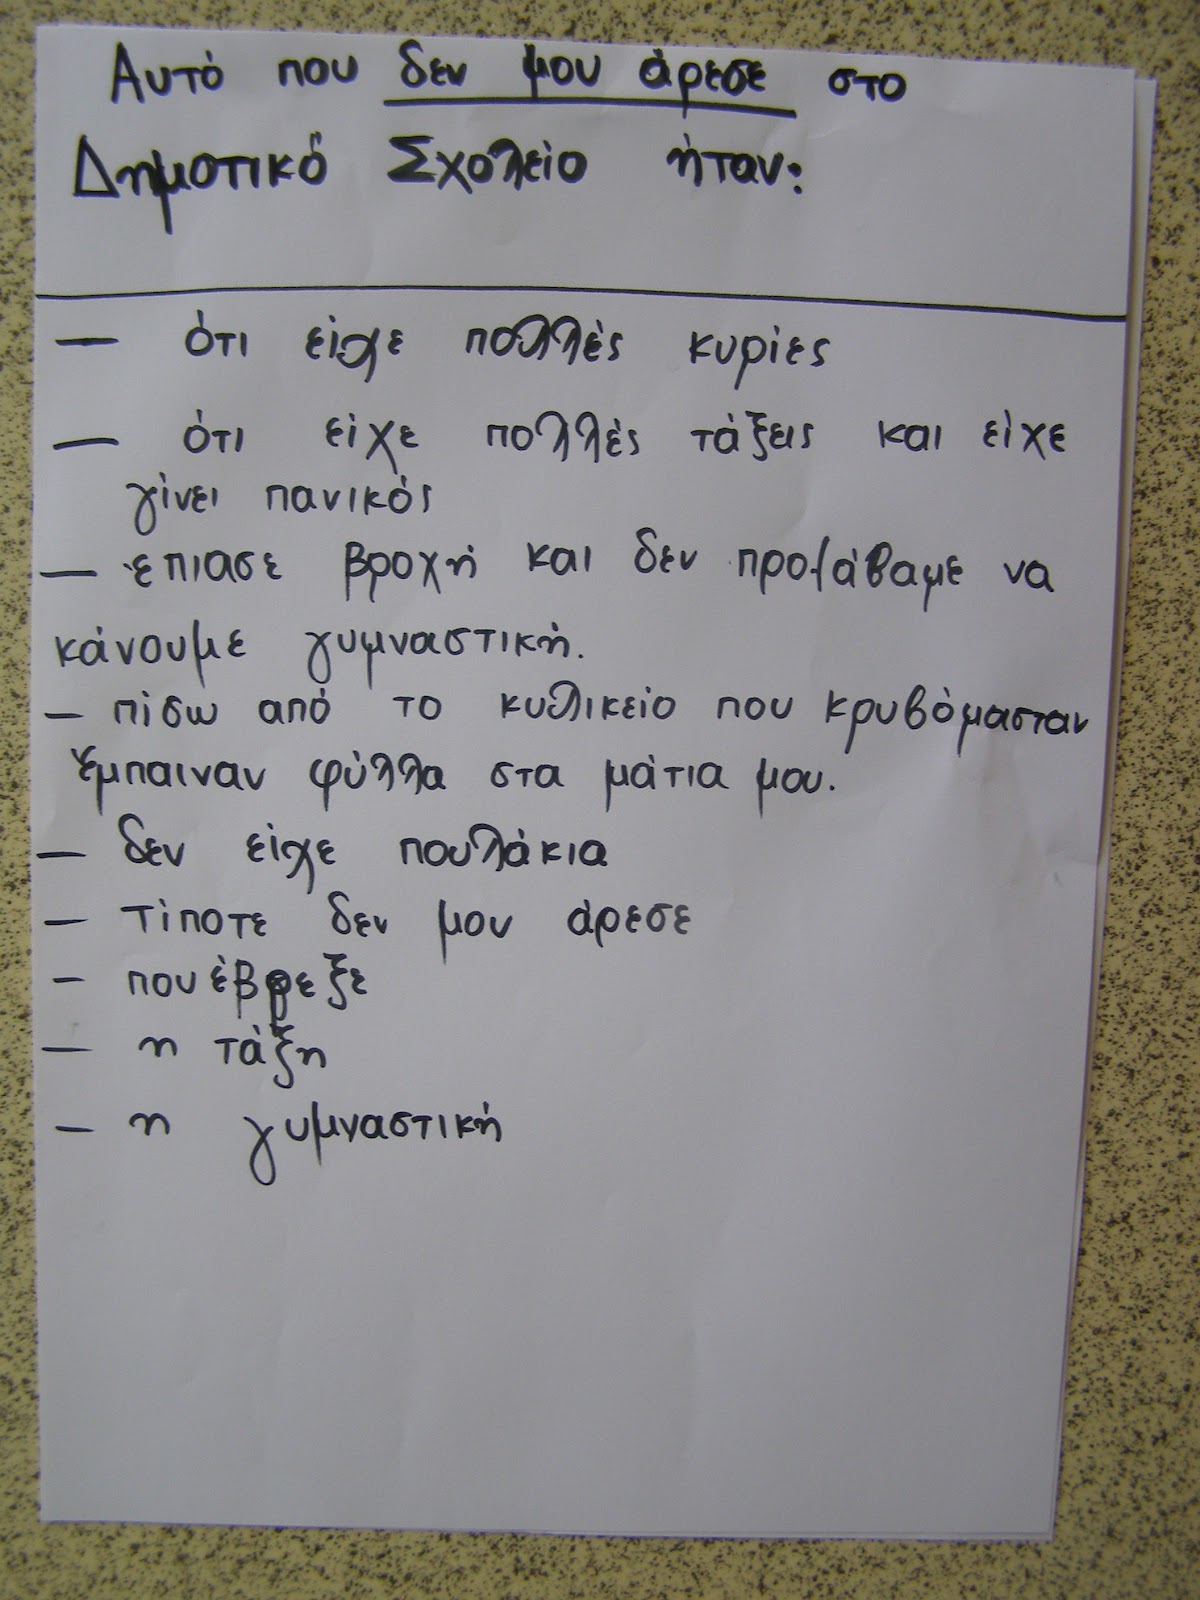 Αυτό που δεν μου άρεσε στο
Δημοτικό Σχολείο ήταν:
— ότι είχε πολλές κυρίες
— ότι είχε πολλές τάξεις και είχε
γίνει πανικός
— έπιασε βροχή και δεν προλάβαμε να
κάνουμε γυμναστική.
— πίσω από το κυλικείο που κρυβόμασταν
έμπαιναν φύλλα στα μάτια μου.
— δεν είχε πουλάκια
— τίποτε δεν μου άρεσε
— που έβρεξε
— η τάξη
— η γυμναστική